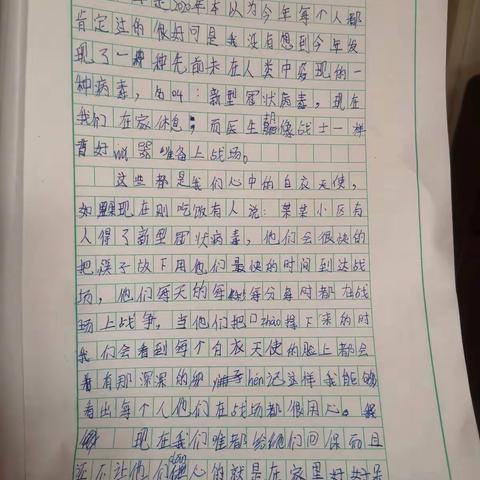 是2020年本以为今年每个人都
肯定过的很好可是我没有想到今年发
现了一种先前未在人类中发现的一
种病毒，名叫：新型冠状病毒，现在
我们在家休息；而医生都像战士一样
背好wǔ器准备上战场。
这些都是我们心中的白衣天使，
如果现在刚吃饭有人说：某某小区有
人得了新型冠状病毒，他们会很快的
把筷子放下用他们最快的时间到达战
场，他们每天的每每分每时都在战
场上战争。当他们把口zhào摘下来的时
我们会看到每个白衣天使的脸上都会
看有那深深的那hén记这样我能够
看出每个人他们在战场都很用心。
现在我们谁都给他们回保而且
还不让他们心的就是在家里好好